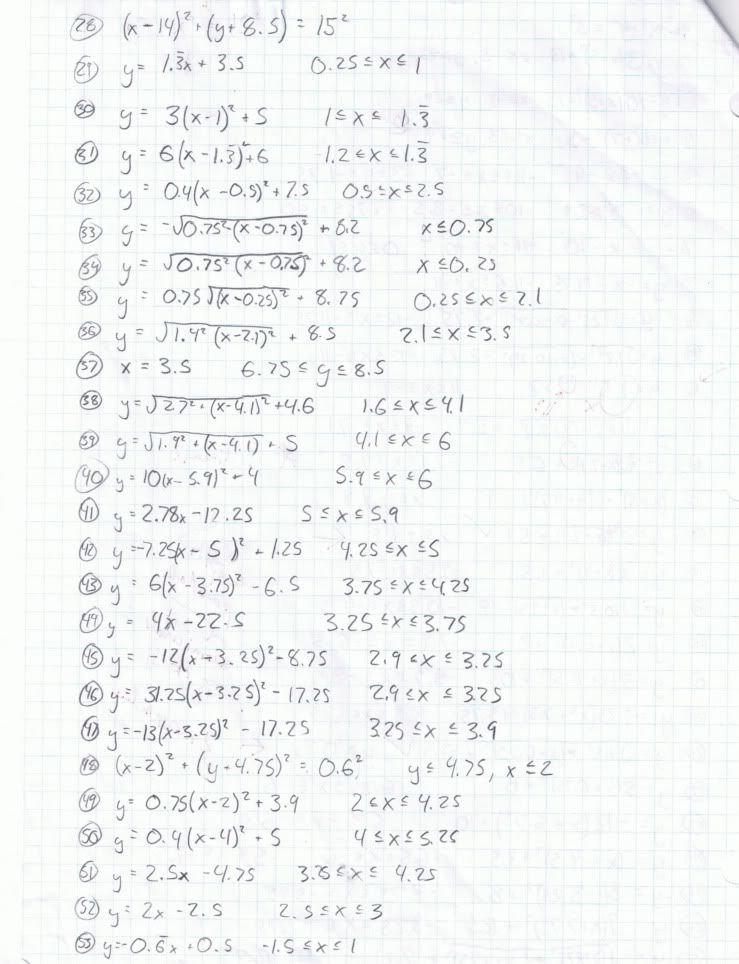 28 (x-14)² + (y+8.5) = 15²
29 y = 1.3̅x + 3.5 0.25 ≤ x ≤ 1
30 y = 3(x-1)² + 5 1 ≤ x ≤ 1.3̅
31 y = 6(x-1.3̅)²+6 1.2 ≤ x ≤ 1.3̅
32 y = 0.4(x-0.5)² + 7.5 0.5 ≤ x ≤ 2.5
33 y = -√0.75²-(x-0.75)² + 8.2 x ≤ 0.75
34 y = √0.75²-(x-0.75)² + 8.2 x ≤ 0.25
35 y = 0.75√(x-0.25)² + 8.75 0.25 ≤ x ≤ 2.1
36 y = √1.4²-(x-2.1)² + 8.5 2.1 ≤ x ≤ 3.5
37 x = 3.5 6.75 ≤ y ≤ 8.5
38 y = √2.7²+(x-4.1)² + 4.6 1.6 ≤ x ≤ 4.1
39 y = √1.9²+(x-4.1) + 5 4.1 ≤ x ≤ 6
40 y = 10(x-5.9)² - 4 5.9 ≤ x ≤ 6
41 y = 2.78x - 17.25 5 ≤ x ≤ 5.9
42 y = -7.25(x-5)² + 1.25 4.25 ≤ x ≤ 5
43 y = 6(x-3.75)² - 6.5 3.75 ≤ x ≤ 4.25
44 y = 4x - 22.5 3.25 ≤ x ≤ 3.75
45 y = -12(x+3.25)² - 8.75 2.9 ≤ x ≤ 3.25
46 y = 31.25(x-3.25)² - 17.25 2.9 ≤ x ≤ 3.25
47 y = -13(x-3.25)² - 17.25 3.25 ≤ x ≤ 3.9
48 (x-2)² + (y+4.75)² = 0.6² y ≤ 4.75, x ≤ 2
49 y = 0.75(x-2)² + 3.9 2 ≤ x ≤ 4.25
50 y = 0.4(x-4)² + 5 4 ≤ x ≤ 5.25
51 y = 2.5x - 4.75 3.25 ≤ x ≤ 4.25
52 y = 2x - 2.5 2.5 ≤ x ≤ 3
53 y = -0.6̅x + 0.5 -1.5 ≤ x ≤ 1